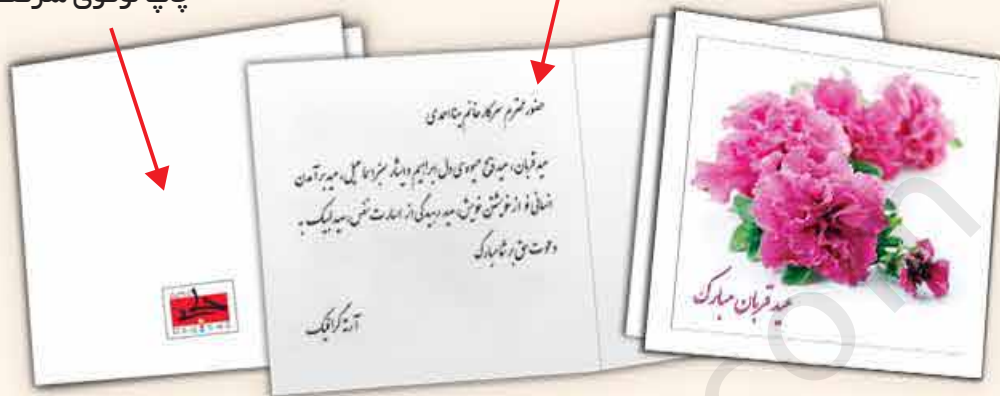 چاپ لوگوی شرکت
حضور محترم سرکار خانم مینا احمدی
عید قربان، عید ذبح حیوودی دل ابراهیم و ایثار سبز اسماعیلی، عید بر آمدن
انسانی نو از خویشتن خویش، عید رهیدگی از اسارت نفس، عید لبیک به
دعوت حق بر شما مبارک
آرنه گرافیک
عید قربان مبارک
com